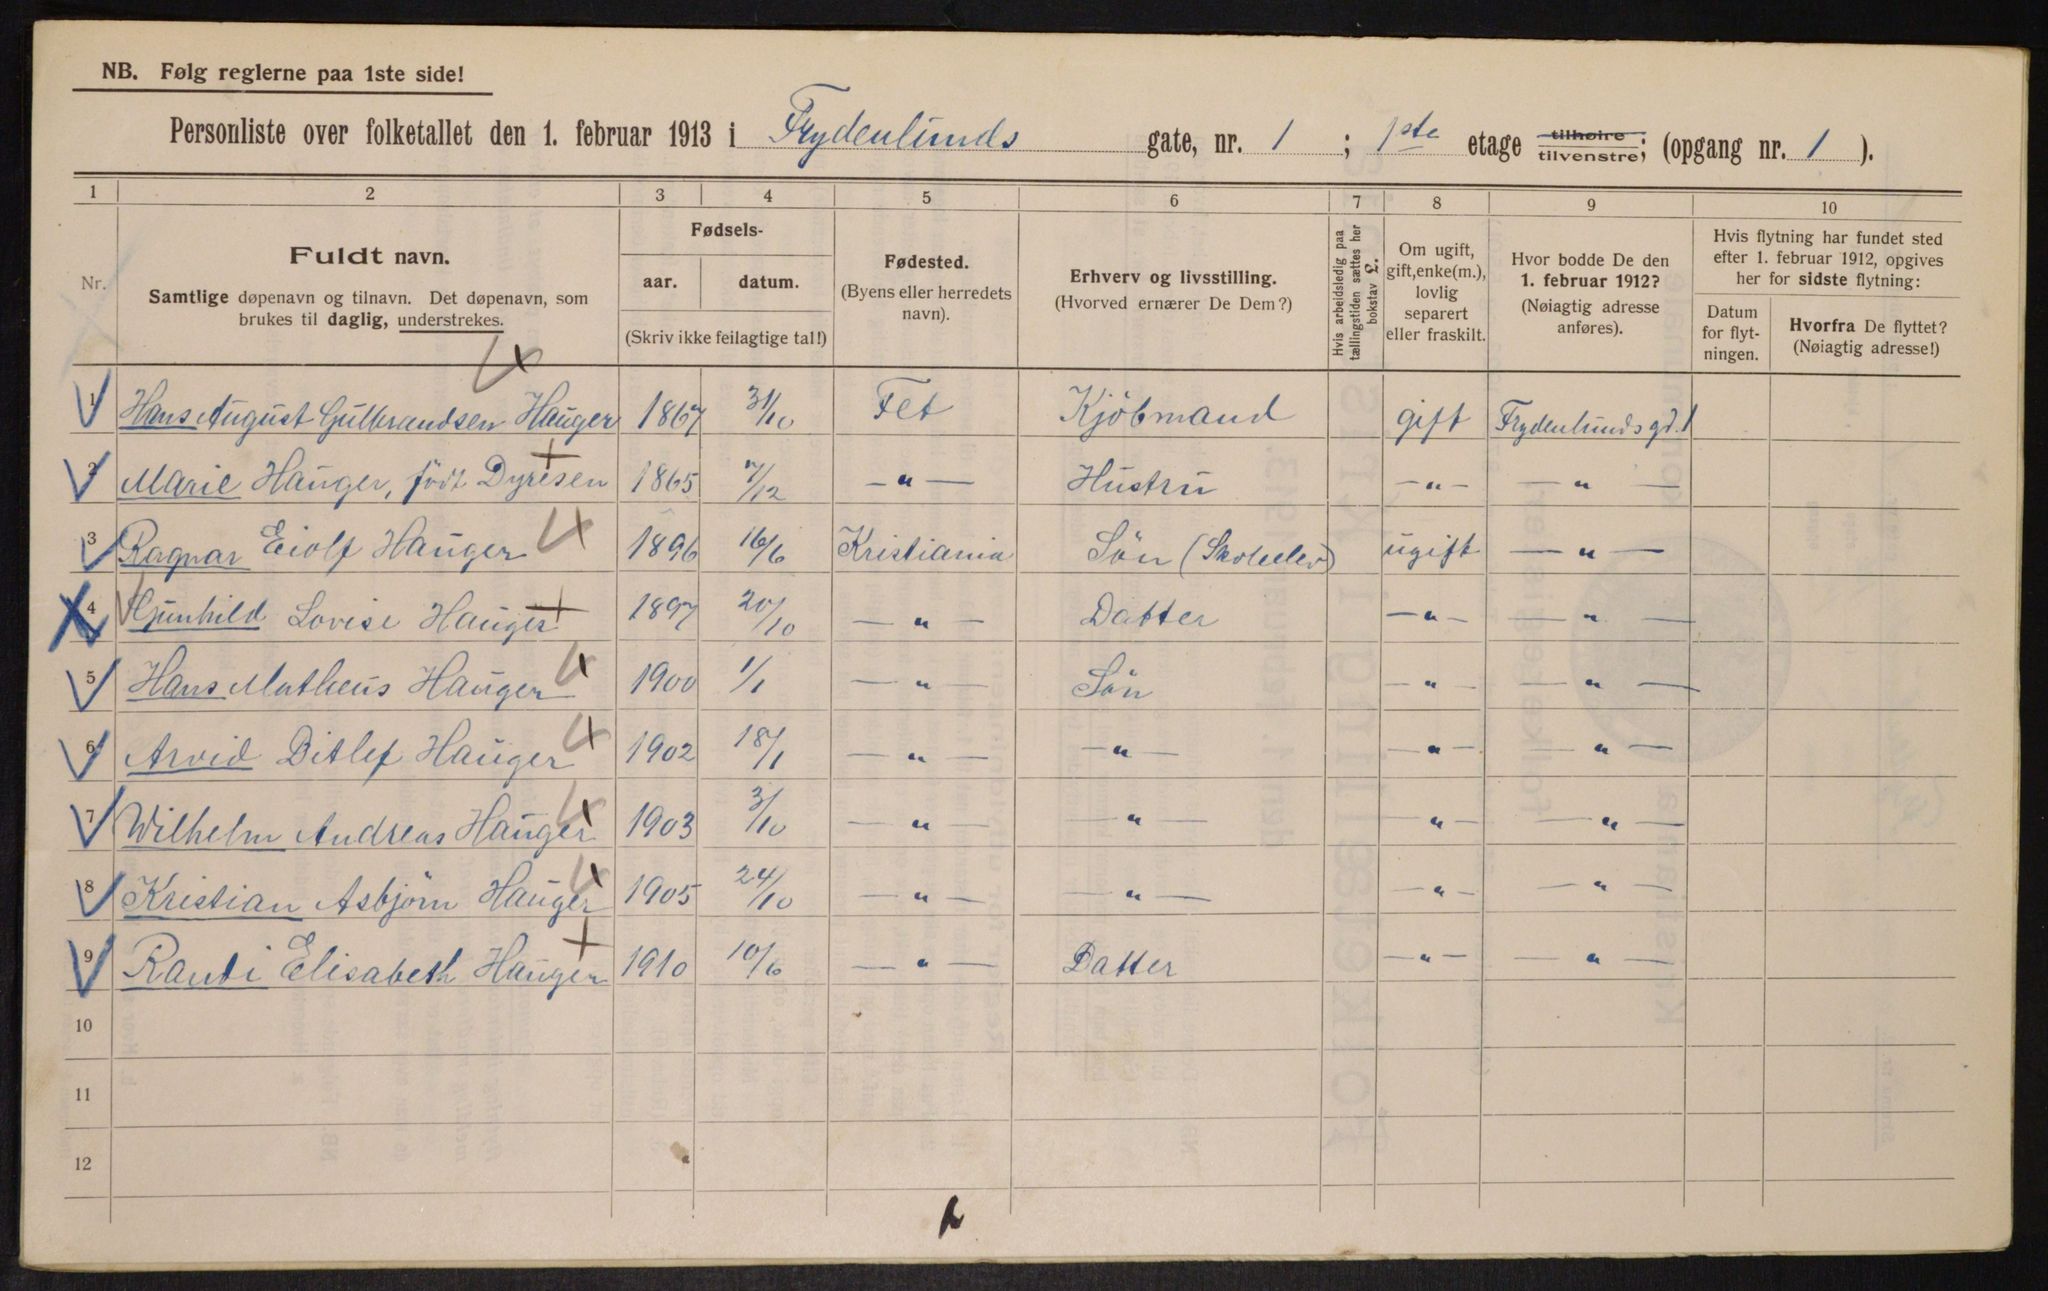 NB. Følg reglerne paa 1ste side!
Personliste over folketallet den 1. februar 1913 i Frydenlunds gate, nr. 1 ; 1ste etage tilhøire tilvenstre; (opgang nr. 1 ).
1 2 3 4 5 6 7 8 9 10
Nr.
Fuldt navn.
Samtlige døpenavn og tilnavn. Det døpenavn, som
brukes til daglig, understrekes.
Fødsels-
aar. datum.
(Skriv ikke feilagtige tal!)
Fødested.
(Byens eller herredets
navn).
Erhverv og livsstilling.
(Hvorved ernærer De Dem?)
Hvis arbeidsledig paa
tællingstiden sættes her
bokstav L.
Om ugift,
gift, enke(m.),
lovlig
separert
eller fraskilt.
Hvor bodde De den
1. februar 1912?
(Nøiagtig adresse
anføres).
Hvis flytning har fundet sted
efter 1. februar 1912, opgives
her for sidste flytning:
Datum
for flyt-
ningen.
Hvorfra De flyttet?
(Nøiagtig adresse!)
1 Hans August Gulbrandsen Hauger 1867 31/10 Fet Kjöbmand gift Frydenlundsgd. 1
2 Marie Hauger, född Dyresen 1865 7/12 — " — Hustru — " — — " —
3 Ragnar Eiolf Hauger 1896 16/6 Kristiania Sön (Skoleelev) ugift — " —
4 Gunhild Lovise Hauger 1897 20/10 — " — Datter — " — — " —
5 Hans Matheus Hauger 1900 1/1 — " — Sön — " — — " —
6 Arvid Ditlef Hauger 1902 18/1 — " — — " — — " — — " —
7 Wilhelm Andreas Hauger 1903 3/10 — " — — " — — " — — " —
8 Kristian Asbjörn Hauger 1905 24/10 — " — — " — — " — — " —
9 Randi Elisabeth Hauger 1910 10/6 — " — Datter — " — — " —
10
11
12